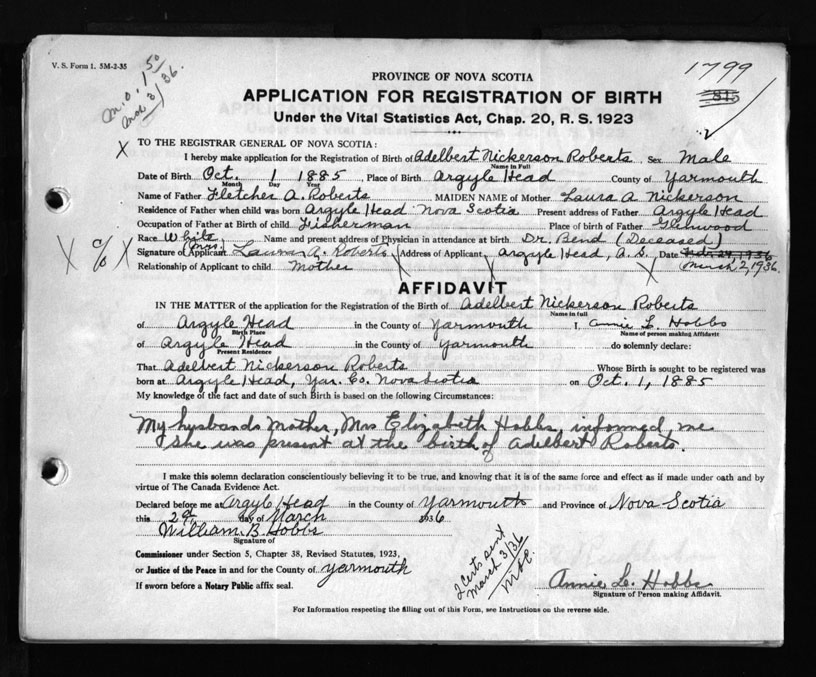 V. S. Form 1. 5M-2-35
M.O. 1 50
Mch 3/36.
1799
815
PROVINCE OF NOVA SCOTIA
APPLICATION FOR REGISTRATION OF BIRTH
Under the Vital Statistics Act, Chap. 20, R. S. 1923
X TO THE REGISTRAR GENERAL OF NOVA SCOTIA:
I hereby make application for the Registration of Birth of Adelbert Nickerson Roberts Sex Male
Name in Full
Date of Birth Oct. 1 1885, Place of Birth Argyle Head County of Yarmouth
Month Day Year
Name of Father Fletcher A. Roberts MAIDEN NAME of Mother Laura A Nickerson
Residence of Father when child was born Argyle Head Nova Scotia Present address of Father Argyle Head
Occupation of Father at Birth of child Fisherman Place of birth of Father Glenwood
Race White Name and present address of Physician in attendance at birth Dr. Bend (Deceased)
X % X Signature of Applicant (Mrs) Laura A. Roberts Address of Applicant Argyle Head, N. S. Date
March 2, 1936.
Relationship of Applicant to child Mother
AFFIDAVIT
IN THE MATTER of the application for the Registration of the Birth of Adelbert Nickerson Roberts
Name in full
of Argyle Head in the County of Yarmouth I, Annie L. Hobbs
Birth Place Name of person making Affidavit
of Argyle Head in the County of Yarmouth do solemnly declare:
Present Residence
That Adelbert Nickerson Roberts Whose Birth is sought to be registered was
born at Argyle Head, Yar. Co. Nova Scotia on Oct. 1, 1885
My knowledge of the fact and date of such Birth is based on the following Circumstances:
My husbands Mother, Mrs Elizabeth Hobbs, informed me
she was present at the birth of Adelbert Roberts.
I make this solemn declaration conscientiously believing it to be true, and knowing that it is of the same force and effect as if made under oath and by
virtue of The Canada Evidence Act.
Declared before me at Argyle Head in the County of Yarmouth and Province of Nova Scotia
this 2d, day of March 1936
William B. Hobbs
Signature of
Commissioner under Section 5, Chapter 38, Revised Statutes, 1923,
or Justice of the Peace in and for the County of Yarmouth
If sworn before a Notary Public affix seal.
2 Certs sent
March 3/36
Annie L. Hobbs
Signature of Person making Affidavit.
For Information respecting the filling out of this Form, see Instructions on the reverse side.